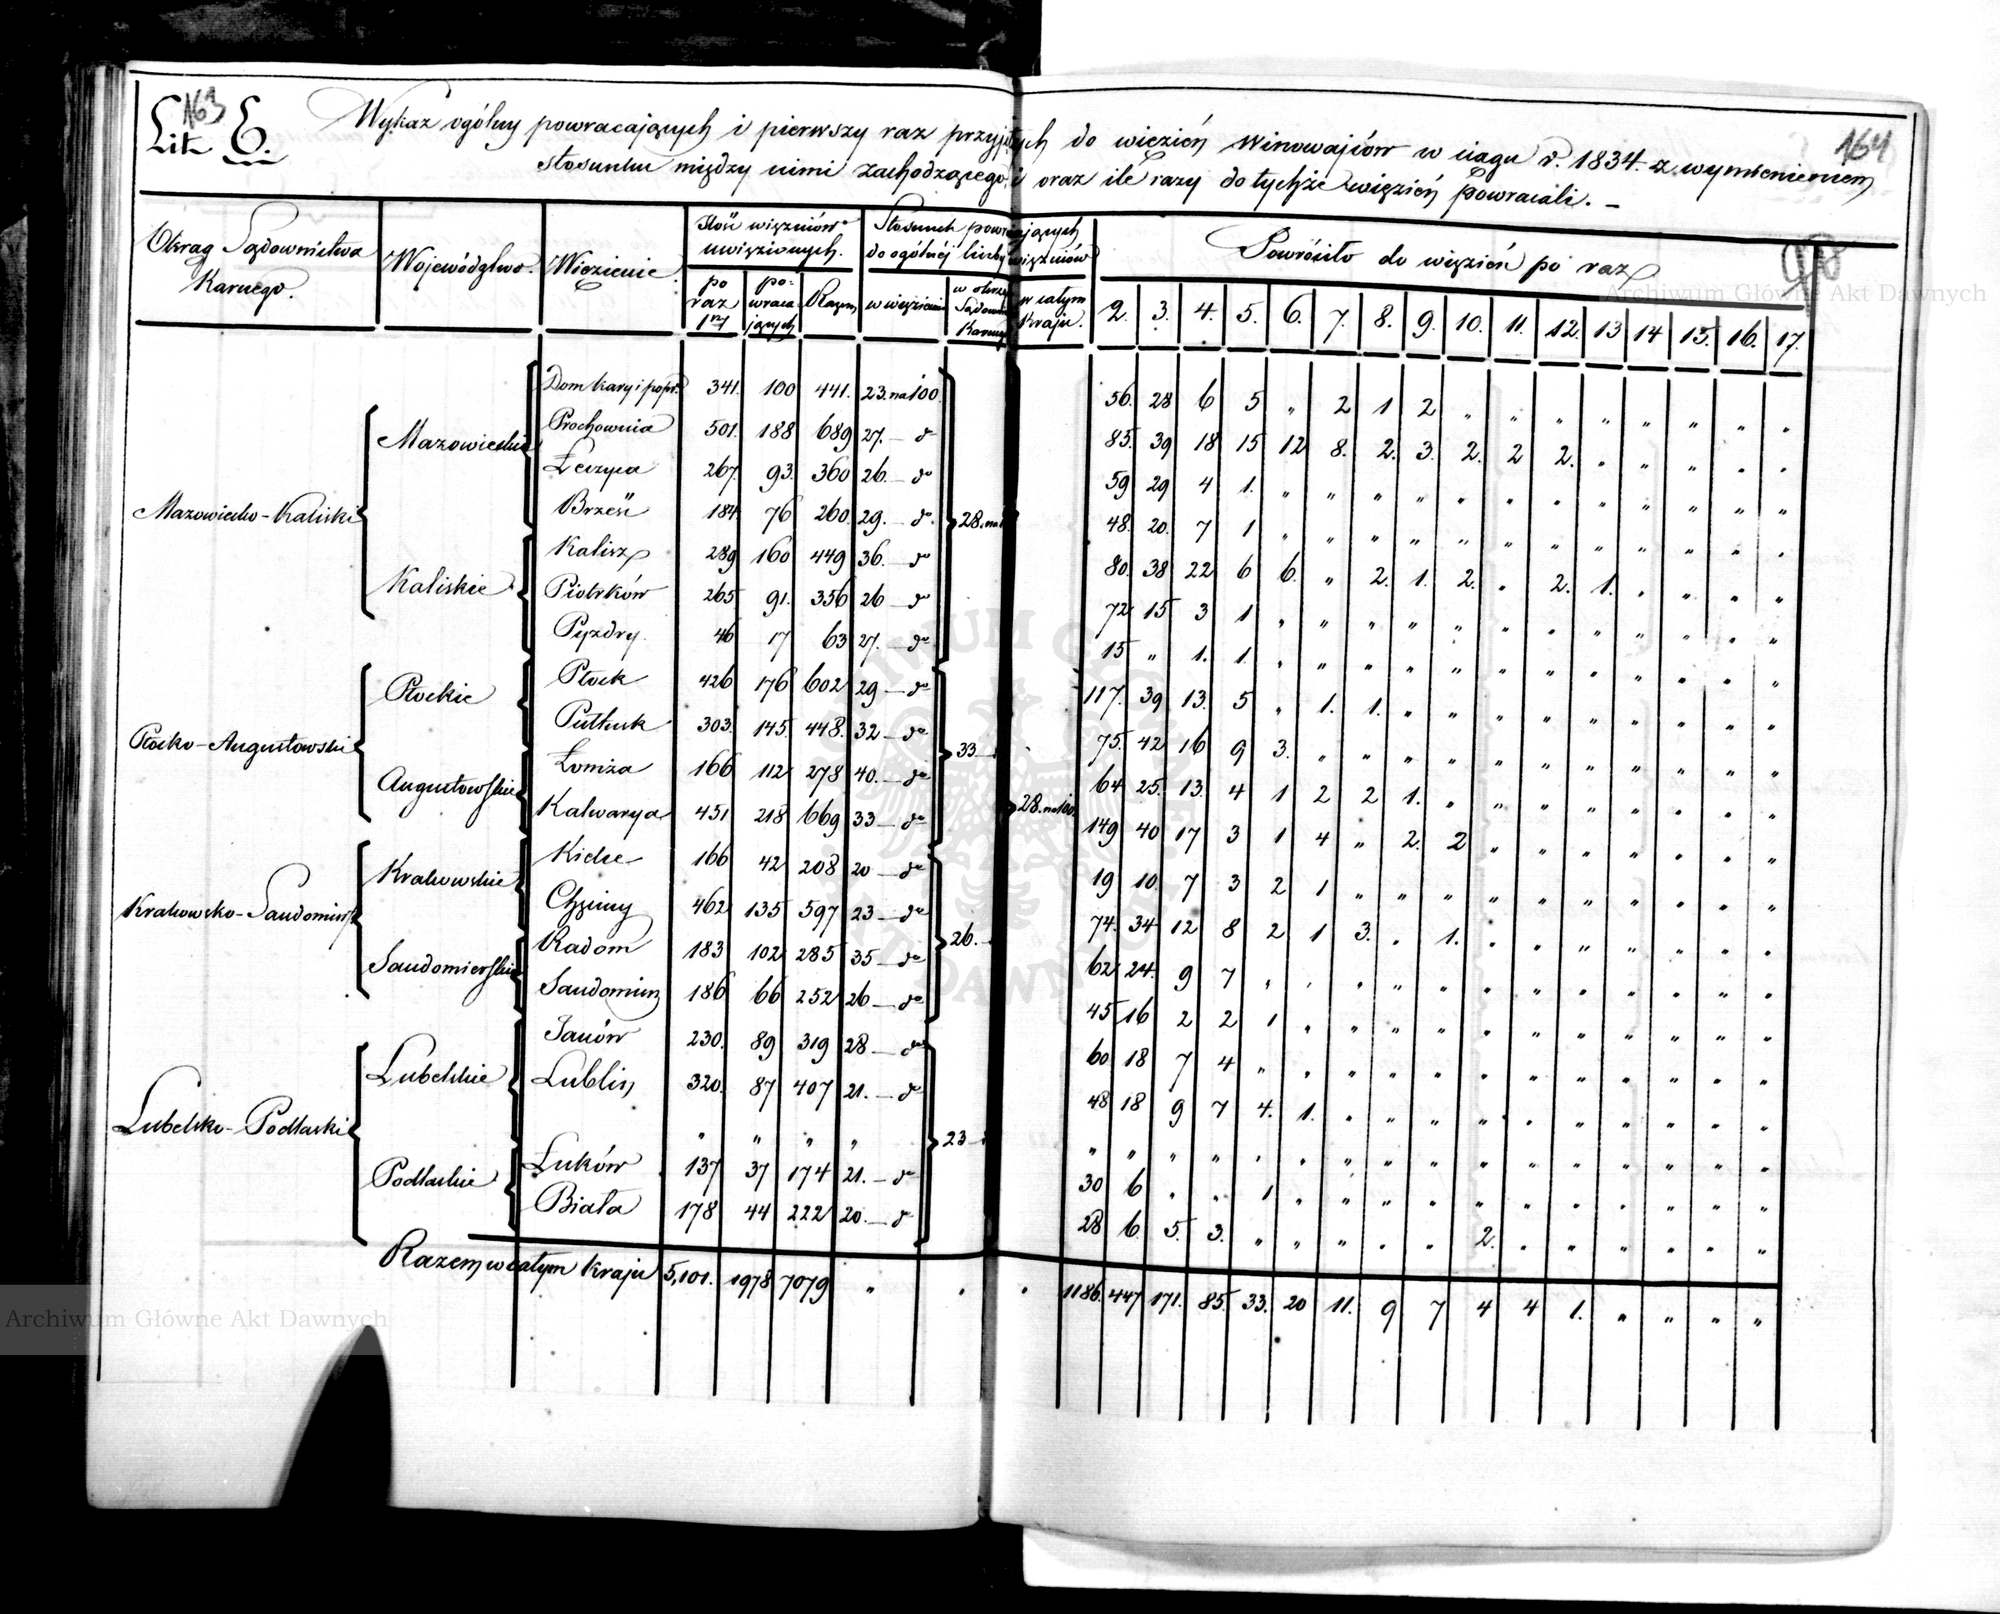 163
Lit. E.
Wykaz ogólny powracających i pierwszy raz przyjętych do więzień Winowajców w ciągu r. 1834. z wymienieniem
164
stosunku między nimi zachodzącego, i oraz ile razy do tychże więzień powracali. –
Okrąg Sądownictwa Karnego.
Województwo.
Więzienie.
Ilość więzniów uwięzionych.
po raz 1szy
powracających
Razem
Stosunek powracających do ogólnéj liczby więzniów
w więzieniu
w okręgu Sądownic. Karnego
w całym Kraju.
Powróciło do więzień po raz
2. 3. 4. 5. 6. 7. 8. 9. 10. 11. 12. 13 14 15. 16. 17.
Archiwum Główne Akt Dawnych
Dom kary i popr. 341. 100 441. 23. na 100. 56. 28 6 5 „ 2 1 2 „ „ „ „ „ „ „ „
Mazowieckie
Prochownia 501. 188 689 27. — do 85. 39 18 15 12 8. 2. 3. 2. 2 2. „ „ „ „ „
Łęczyca 267. 93. 360 26. — do 59 29 4 1. „ „ „ „ „ „ „ „ „ „ „ „
Mazowiecko-Kaliski
Brześć 184. 76 260. 29. — do. 28. na 48. 20. 7 1 „ „ „ „ „ „ „ „ „ „ „ „
Kalisz 289 160 449 36. — do 80. 38 22 6 6. „ 2. 1. 2. „ 2. 1. „ „ „ „
Kaliskie
Piotrków 265 91. 356 26 — do 72 15 3 1 „ „ „ „ „ „ „ „ „ „ „ „
Pyzdry. 46 17 63 27. — do 15 „ 1. 1. „ „ „ „ „ „ „ „ „ „ „ „
Płockie
Płock 426 176 602 29 — do 117. 39 13. 5 „ 1. 1. „ „ „ „ „ „ „ „ „
Pułtusk 303. 145. 448. 32 — do 75. 42 16 9 3. „ „ „ „ „ „ „ „ „ „ „
Płocko-Augustowski
33 —
Łomża 166 112 278 40. — do 64 25. 13. 4 1 2 2 1. „ „ „ „ „ „ „ „
Augustowskie
28. na 100.
Kalwarya 451 218 669 33 — do 149 40 17 3 1 4 „ 2. 2 „ „ „ „ „ „ „
Krakowskie
Kielce 166 42 208 20 — do 19 10 7 3 2 1 „ „ „ „ „ „ „ „ „ „
Krakowsko-Sandomirs.
Chęciny 462 135 597 23 — do 74. 34 12 8 2 1 3. „ 1. „ „ „ „ „ „ „
26. —
Radom 183 102 285 35 — do 62 24. 9 7 „ „ „ „ „ „ „ „ „ „ „ „
Sandomierskie
Sandomirz 186 66 252 26 — do 45 16 2 2 1 „ „ „ „ „ „ „ „ „ „ „
Janów 230. 89 319 28 — do 60 18 7 4 „ „ „ „ „ „ „ „ „ „ „ „
Lubelskie
Lublin 320. 87 407 21. — do 48 18 9 7 4. 1. „ „ „ „ „ „ „ „ „ „
Lubelsko-Podlaski
23 —
„ „ „ „ „ „ „ „ „ „ „ „ „ „ „ „ „ „ „ „
Łuków 137 37 174 21. — do 30 6 „ „ 1 „ „ „ „ „ „ „ „ „ „ „
Podlaskie
Biała 178 44 222 20. — do 28 6 5. 3. „ „ „ „ „ 2. „ „ „ „ „ „
Razem w całym kraju 5,101. 1978 7079 „ „ „ 1186. 447 171. 85. 33. 20 11. 9 7 4 4 1. „ „ „ „
Archiwum Główne Akt Dawnych